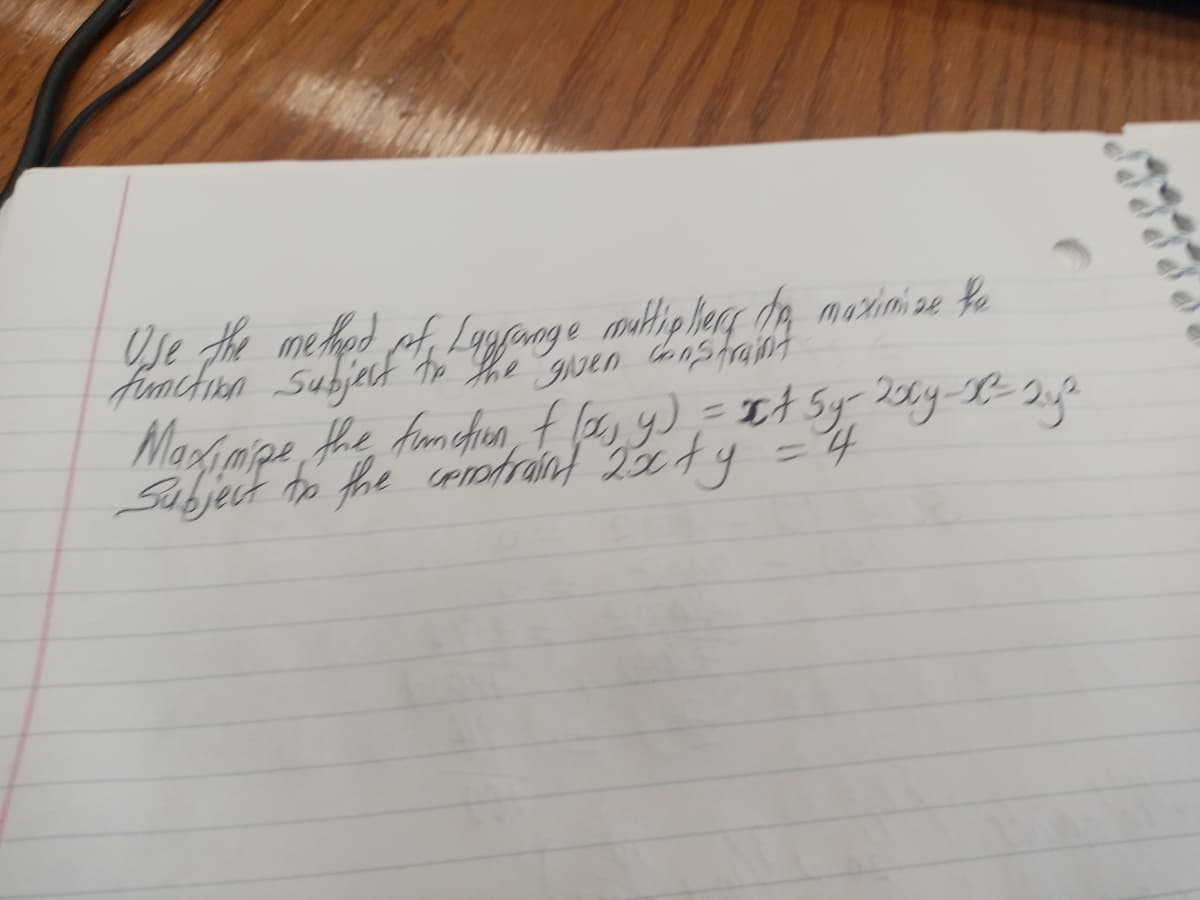 Use the method of Lagrange multipliers to maximise the
function subject to the given constraint
Maximise the function f(x, y) = x + 5y - 2xy - x² - 2y²
Subject to the constraint 2x + y = 4